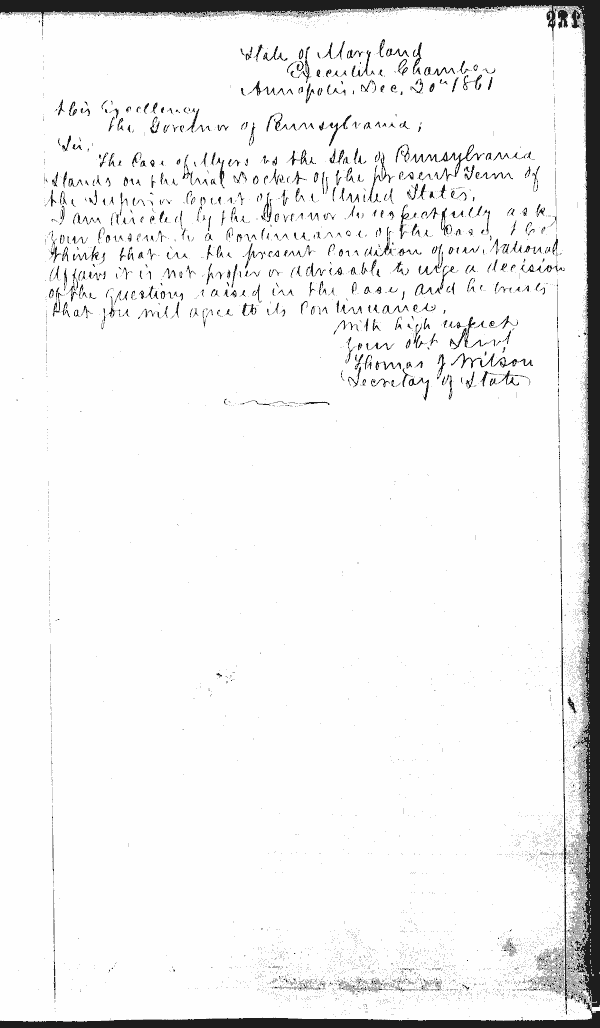 231
State of Maryland
Executive Chamber
Annapolis, Dec, 20th 1861
His Excellency
The Governor of Pennsylvania;
Sir,
The Case of Myers vs the State of Pennsylvania
Stands on the Trial Docket of the present Term of
the Superior Court of the United States.
I am directed by the Governor to respectfully ask
your Consent to a Continuance of the Case. He
thinks that in the present Condition of our National
Affairs it is not proper or advisable to urge a decision
of the questions raised in the Case, and he trusts
that you will agree to its Continuance.
With high respect
your obt Servt
Thomas J Wilson
Secretary of State